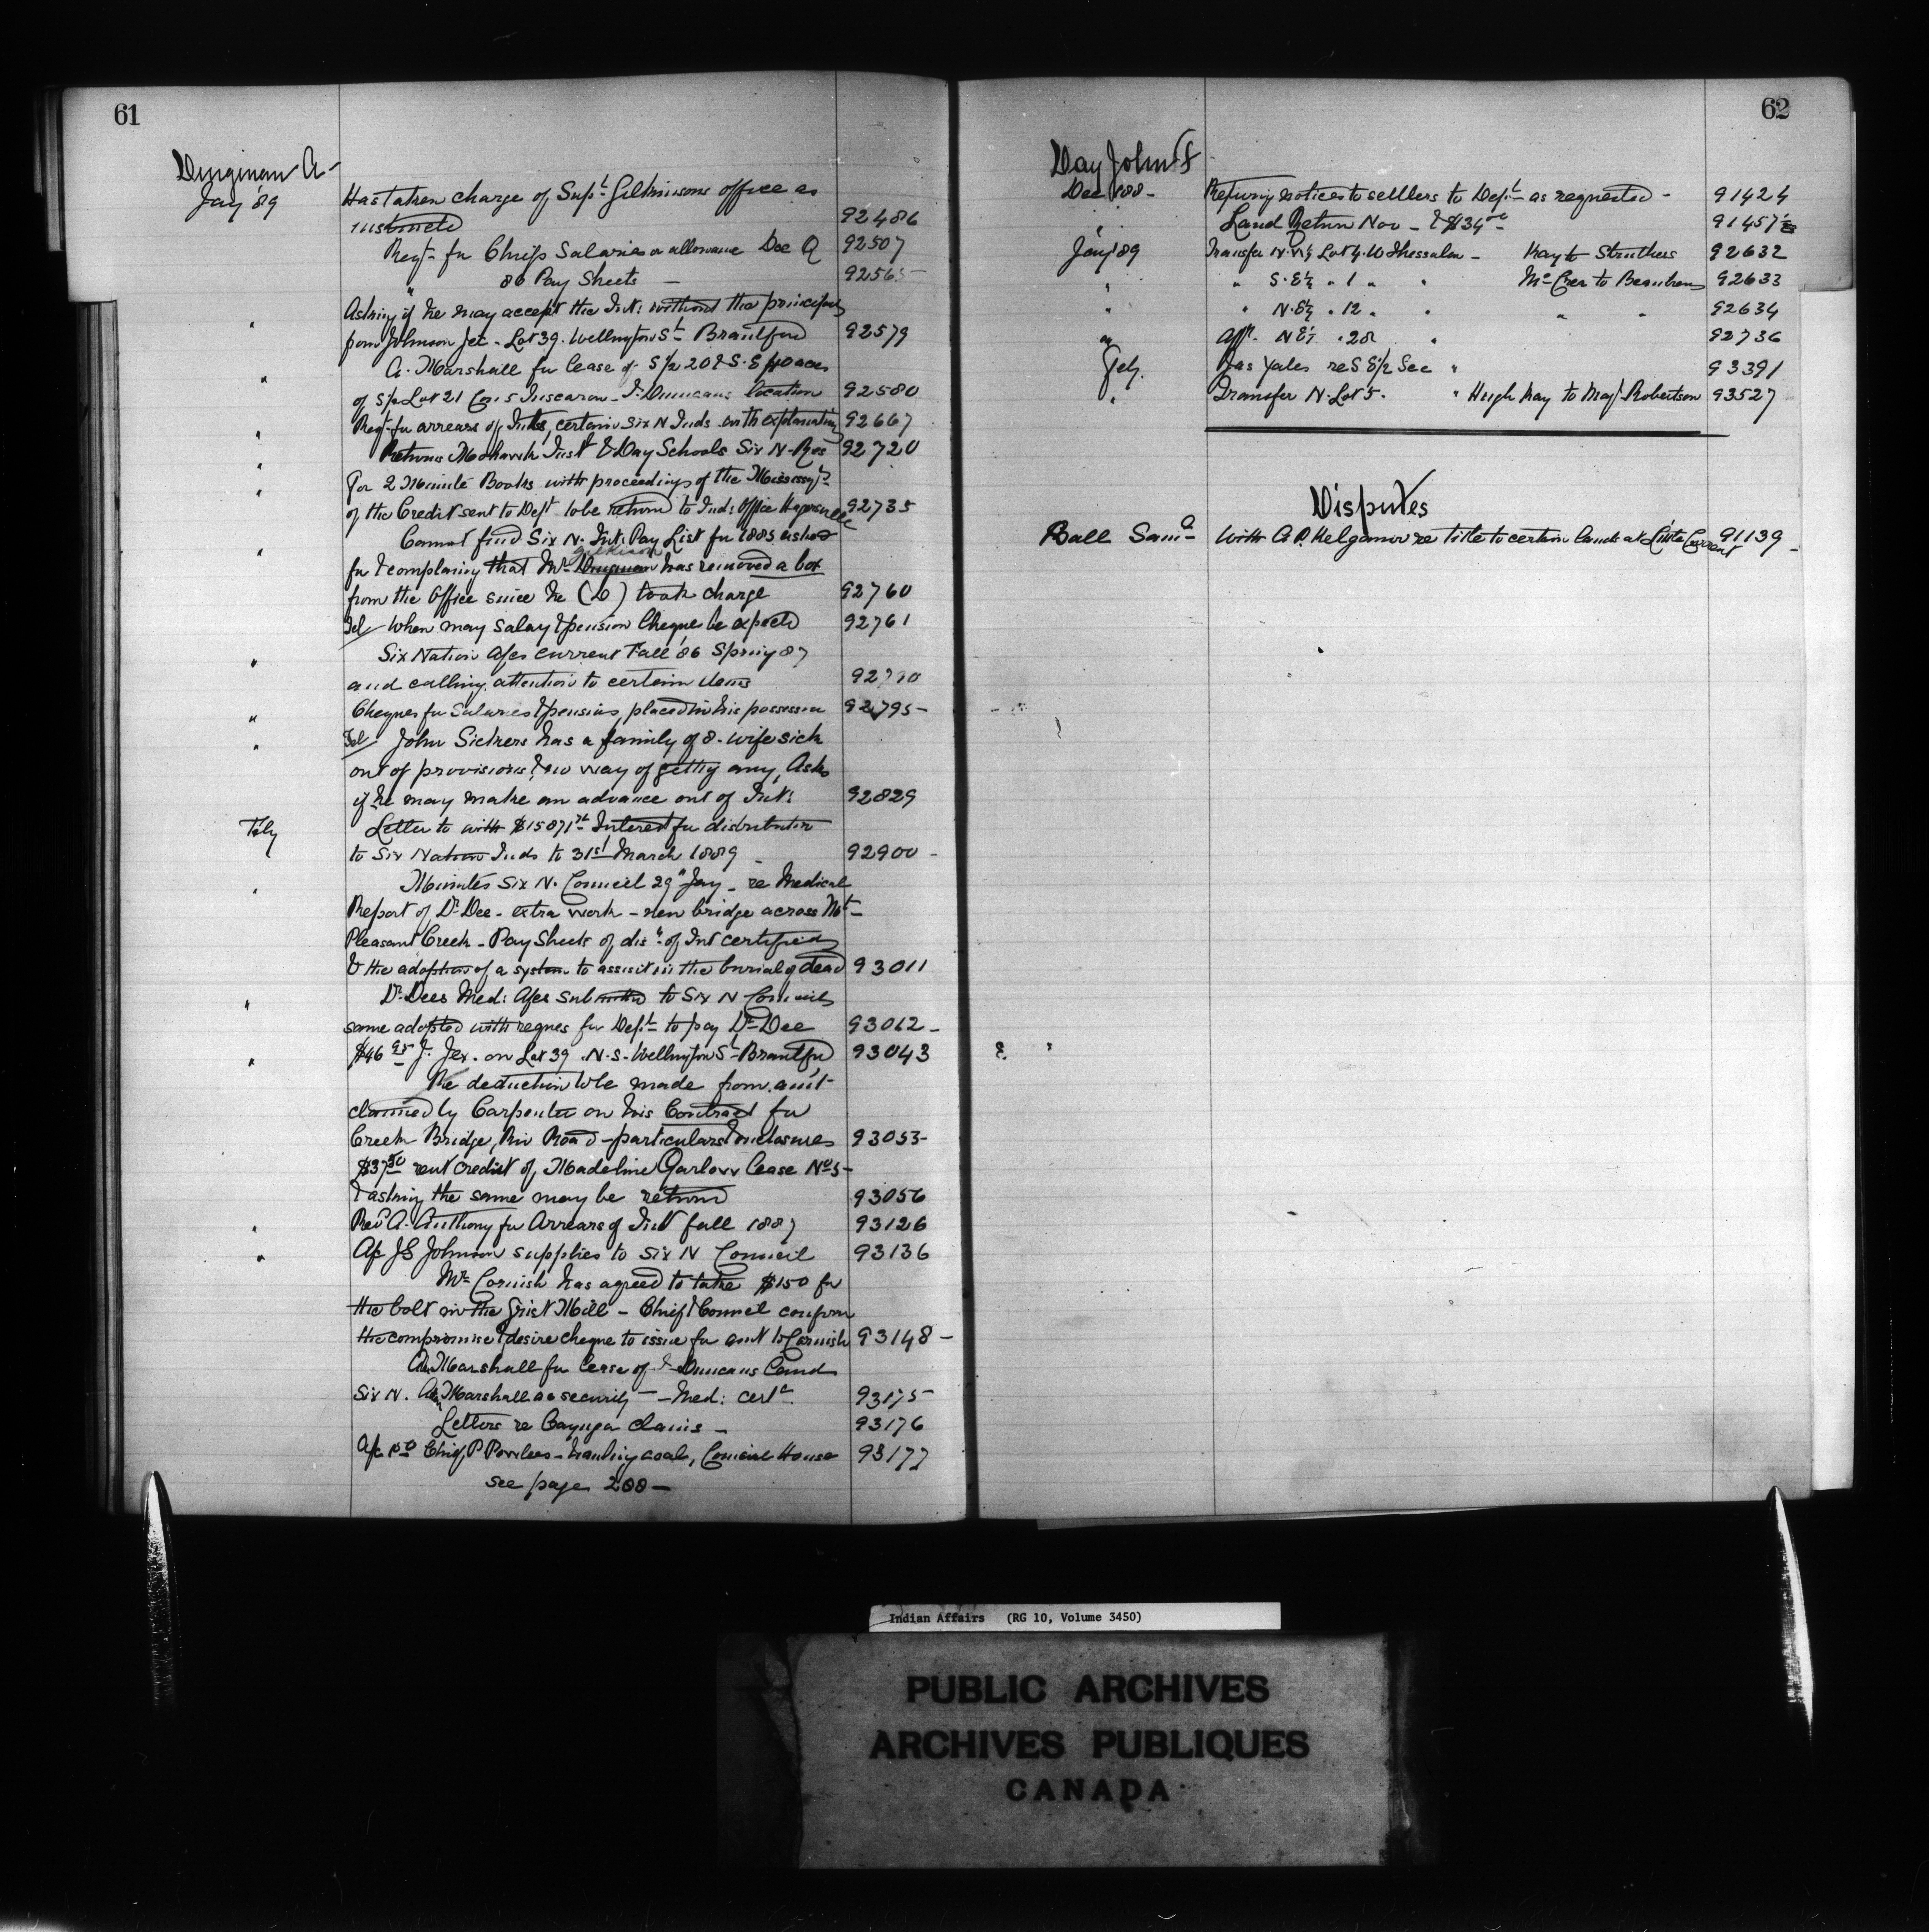 61
Dingman A
Jany '89 Has taken charge of Supt Gilkinsons office as
instructed 92486
Reqt for Chiefs Salaries or allowance Dec Q 92507
" 86 Pay Sheets — 92565
Asking if he may accept the Int: without the principal
" from Johnson Jex - Lot 39. Wellington St Brantford 92579
A. Marshall for lease of S 1/2 20 & S. E 40 acres
" of S 1/2 Lot 21 Con 5 Tuscarora - T. Duncans location 92580
Reqt for arrears of Int, certain Six N Inds with explanation 92667
" Returns Mohawk Inst & Day Schools Six N. Res 92720
" For 2 Minute Books with proceedings of the Mississagas
" of the Credit sent to Dept to be return to Ind: Office Hagersville 92735
Cannot find Six N. Int: Pay List for 1885 asked
" for & complaining that Mr Dingman Gilkison has removed a box
from the Office since he (D) took charge 92760
Tel When may Salary & pension Cheque be expected 92761
Six Nation A/cs current Fall '86 Spring 87
" and calling attention to certain items 92790
" Cheques for Salaries & pensions, placed in his possession 92795 -
" Tel John Sickners has a family of 8 - wife sick
out of provisions & no way of getting any, Asks
if he may make an advance out of Int: 92829
Feby Letter to with $15871 Interest for distribution
to Six Nation Inds to 31st March 1889 - 92900 -
" Minutes Six N. Council 29" Jany - re Medical
Report of Dr Dee - extra work - new bridge across Mt
Pleasant Creek - Pay Sheets of dis" of Int certified
& the adoption of a system to assist in the burial of dead 93011
" Dr Dees Med: A/cs submitted to Six N Council
same adopted with reques for Dept to pay Dr Dee 93012 -
" $46 95 J. Jex. on Lot 39 N.S. Wellington St Brantford 93043
Re deduction to be made from amt
claimed by Carpenter on his Contract for
Creek Bridge, Riv Road - particulars & enclosures 93053
$37 50 rent credit of Madeline Garlow Lease No 5 -
& asking the same may be return 93056
" Revd A. Anthony for Arrears of Int fall 1887 93126
" A/c J S Johnson supplies to Six N Council 93136
Mr Cornish has agreed to take $150 for
the bolt in the Grist Mill - Chief & Council confirm
the compromise & desire cheque to issue for amt to Cornish 93148 -
Marshall for lease of T Duncans Land
Six N. Marshall as security - Med: certe 93175
Letters re Cayuga claims - 93176
A/c Chief P Powless - hauling coal, Council House 93177
see page 208 -
62
Day John F
Dec '88 - Refusing notices to settlers to Dept as requested - 91424
" Land Return Nov - & $34 00 91457
Jany '89 Transfer N. W 1/4 Lot 4. W Thessalon - Hay to Struthers 92632
" " S. E 1/4 " 1 " " Mc Cree to Beaudreau 92633
" " N. E 1/4 " 12 " " " " 92634
" Aff. N E 1/4 " 28 " 92736
Feby. Jas Yates re S E 1/2 Sec " 93391
" Transfer N. Lot 5. " Hugh Kay to Magt Robertson 93527
Disputes
Ball Saml With A P. Kelganor re title to certain lands at Little Current 91139 -
Indian Affairs (RG 10, Volume 3450)
PUBLIC ARCHIVES
ARCHIVES PUBLIQUES
CANADA